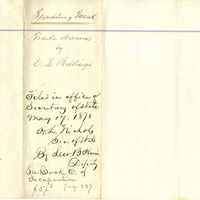 Sparkling Mead
Trade Name
by
E. L. Billings
Filed in office of
Secretary of State
May 17, 1870
H. L. Nichols
Sec. of State
By
Deputy
See Book C. of
Incorporation